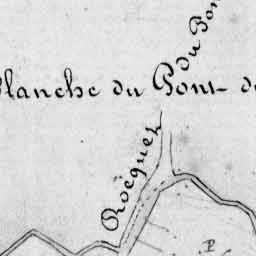 du Pon
Planche du Pont d
Rocquez
P